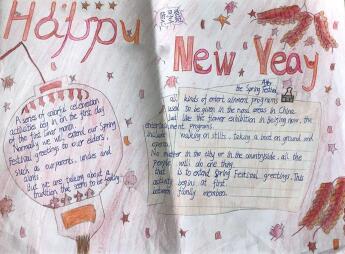 Happy
New Yeay
A series of colorful celebration
activities begin in on the first day
of the first lunar month.
Normally we will extend our Spring
Festival greetings to our elders,
such as our parents, uncles and
But we are talking about a
tradition that seems to be
After
the Spring Festival,
all kinds of entertainment programs
to be given in the rural areas in China.
like the flower exhibition in Beijing now, the
entertainment programs
walking on stilts, taking a boat on ground and
opera.
No matter in the city or in the countryside, all the
people will do
that is to extend Spring Festival greetings. This
activity begins at first
between family members.